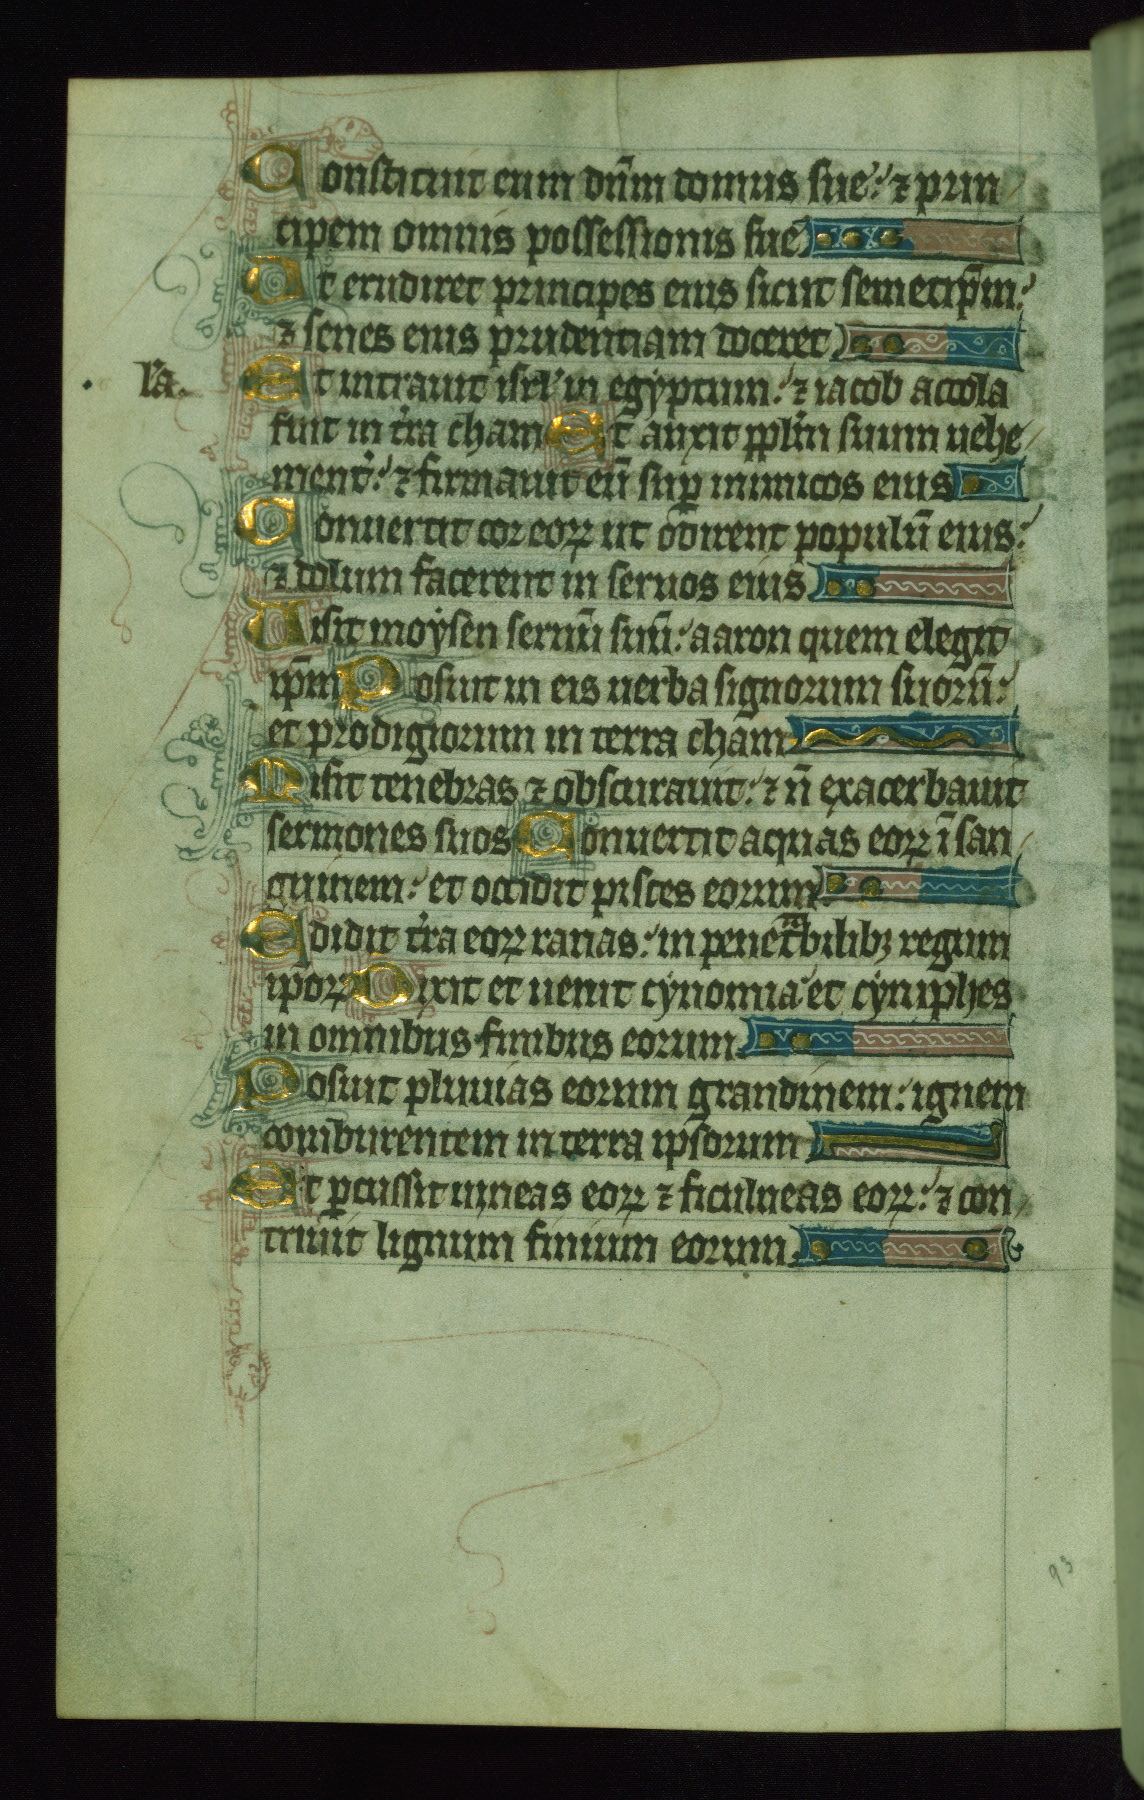 Constituit eum dn̄m domus sue: ⁊ prin
cipem omnis possessionis sue
Ut erudiret principes eius sicut semetip̄m:
⁊ senes eius prudentiam doceret
Et intrauit isrl' in egyptum: ⁊ iacob accola
fuit in t'ra cham Et auxit pplm̄ suum uehe
ment': ⁊ firmauit eū sup̱ inimicos eius
Conuertit cor eoꝝ ut odirent populū eius:
⁊ dolum facerent in seruos eius
Misit moysen seruū suū: aaron quem elegit
ip̄m Posuit in eis uerba signorum suorū:
et prodigiorum in terra cham
Misit tenebras ⁊ obscurauit: ⁊ n̄ exacerbauit
sermones suos Conuertit aquas eoꝝ ī san
guinem: et occidit pisces eorum
Edidit t'ra eoꝝ ranas: in penetᵃbilibꝫ regum
ipoꝝ Dixit et uenit cynomia et cyniphes
in omnibus finibus eorum
Posuit pluuias eorum grandinem: ignem
comburentem in terra ip̄sorum
Et ꝑcussit uineas eoꝝ ⁊ ficulneas eoꝝ: ⁊ con
triuit lignum finium eorum
93